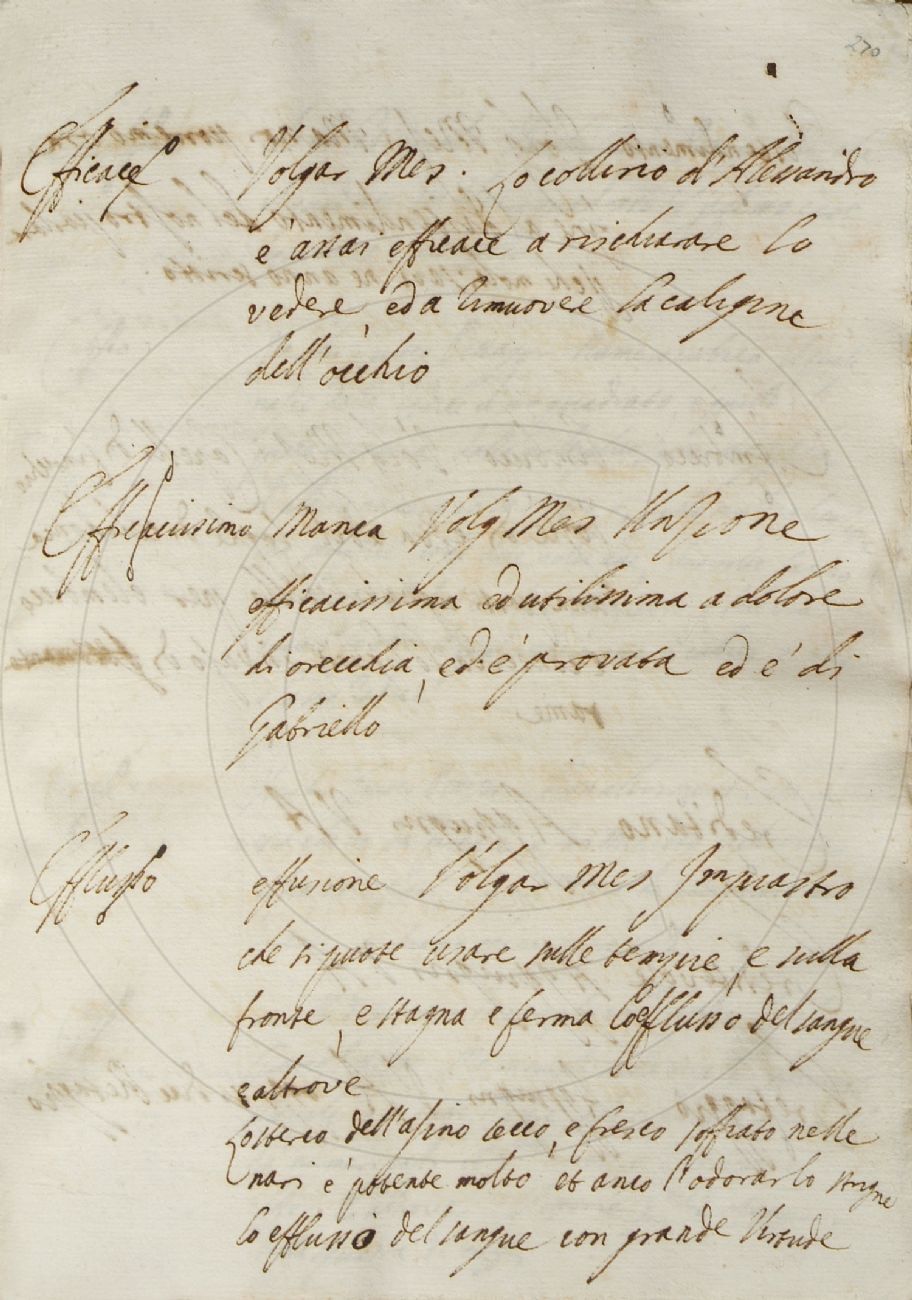 270
Efficace Volgar Mes. Lo collirio d'Alessandro
e' assai efficace a rischiarare lo
vedere, ed a rimuovere la caligine
dell'occhio
Efficacissimo Manca Volg Mes Unzione
efficacissima ed utilissima a dolore
di orecchia, ed e' provata ed e' di
Gabriello
Efflusso effusione Volgar Mes Impiastro
che si puote usare sulle tempie, e sulla
fronte, e stagna e ferma lo efflusso del sangue
e altrove
Lo sterco dell'asino secco, e fresco soffiato nelle
nari e' potente molto et anco l'odorarlo strigne
lo efflusso del sangue con grande virtude